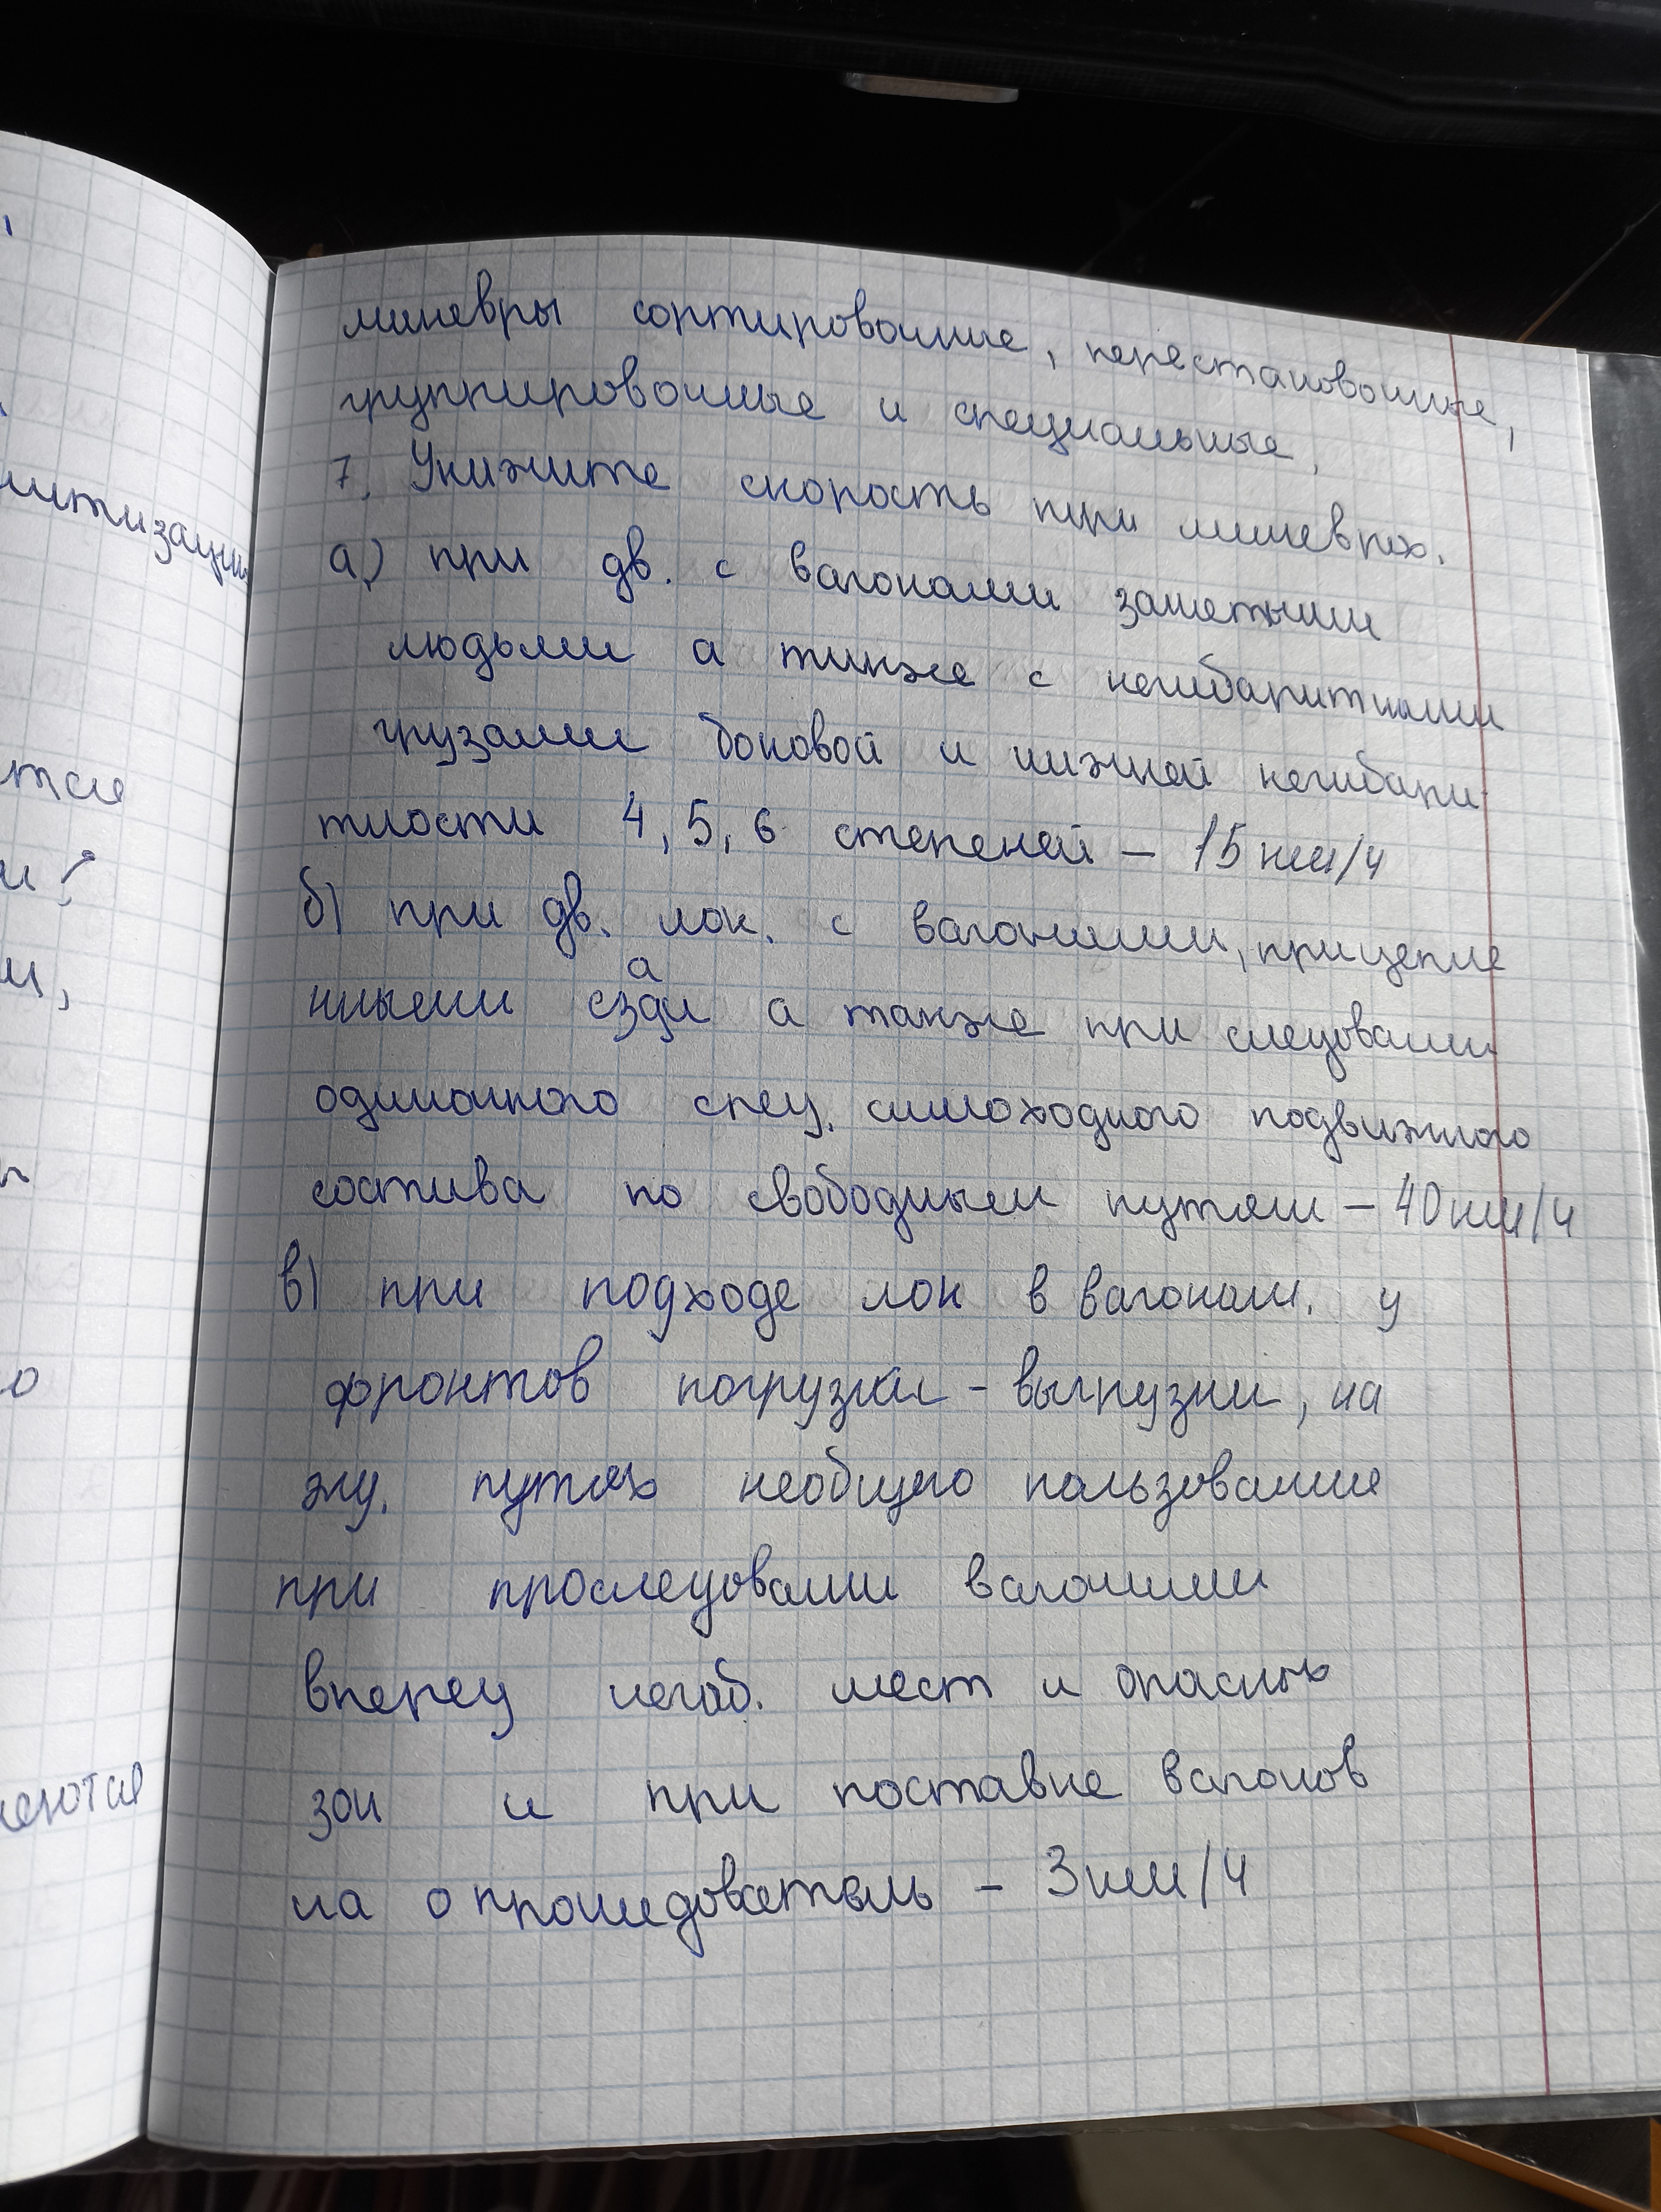 маневры сортировочные, перестановочные,
группировочные и специальные.
7. Укажите скорость при маневрах.
а) при дв. с вагонами занятыми
людьми а также с негабаритными
грузами боковой и нижней негабари
тности 4, 5, 6 степеней – 15 км/ч
б) при дв. лок. с вагонами, прицепле
нными сзади а также при следовании
одиночного спец. самоходного подвижного
состава по свободным путям – 40 км/ч
в) при подходе лок в вагонам. у
фронтов погрузки - выгрузки, на
жд. путях необщего пользования
при проследовании вагонами
вперед негаб. мест и опасных
зон и при поставке вагонов
на опрокидователь – 3 км/ч